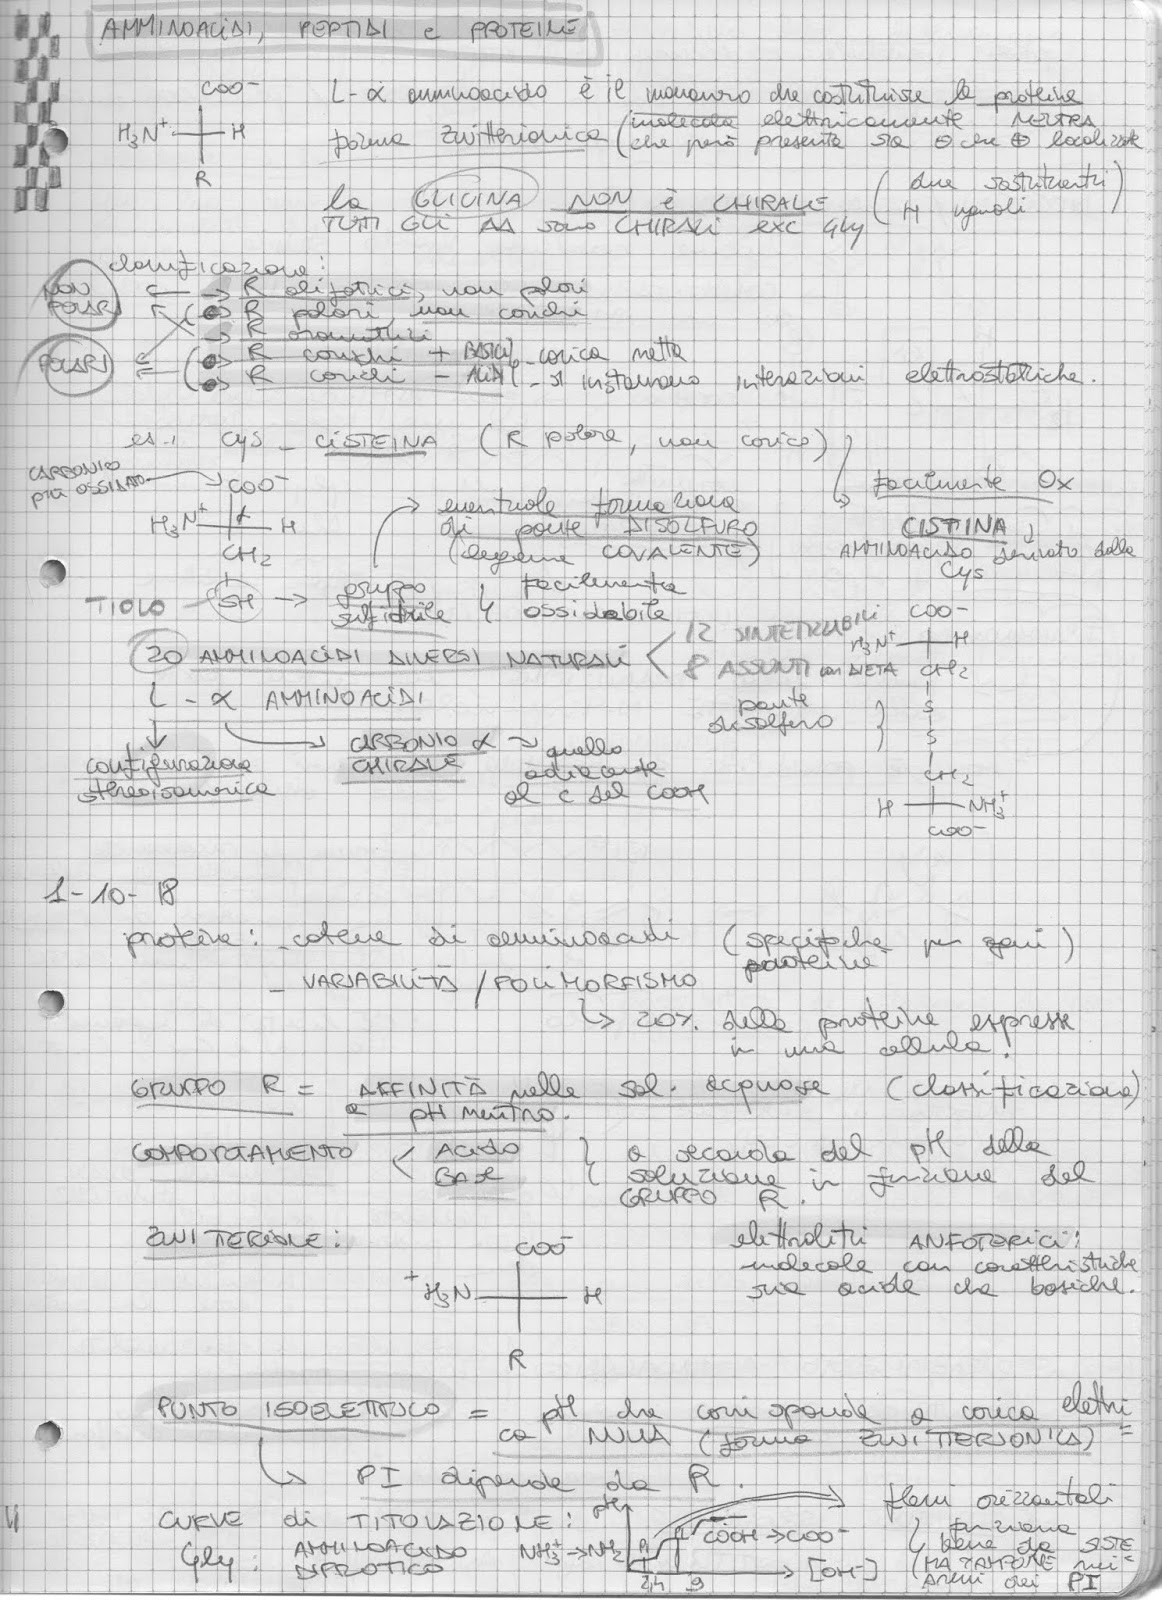 AMMINOACIDI, PEPTIDI e PROTEINE
COO⁻
H₃N⁺ H
R
L-α amminoacido è il monomero che costituisce le proteine
forma zwitterionica (molecola elettricamente NEUTRA
che però presenta sia ⊖ che ⊕ localizzate
la GLICINA NON è CHIRALE (due sostituenti
H uguali)
TUTTI GLI AA sono CHIRALI exc Gly
classificazione:
NON POLARI
→ R alifatici, non polari
R polari, non carichi
→ R aromatici
POLARI
R carichi + BASICI - carica netta
R carichi - ACIDI - si instaurano interazioni elettrostatiche.
es.: Cys - CISTEINA (R polare, non carico)
CARBONIO
più OSSIDATO
COO⁻
H₃N⁺ α H
CH₂
TIOLO - SH → gruppo
sulfidrile
facilmente
ossidabile
eventuale formazione
di ponte DISOLFURO
(legame COVALENTE)
facilmente Ox
CISTINA
AMMINOACIDO derivato dalla
Cys
COO⁻
H₃N⁺ H
CH₂
S
S
CH₂
H NH₃⁺
COO⁻
ponte
disolfuro
20 AMMINOACIDI DIVERSI NATURALI < 12 SINTETIZZABILI
8 ASSUNTI con DIETA
L - α AMMINOACIDI
configurazione
stereoisomerica
CARBONIO α
CHIRALE
→ quello
adiacente
al C del COOH
1-10-18
proteine: - catene di amminoacidi (specifiche per ogni)
proteine
- VARIABILITÀ / POLIMORFISMO
↳ 20% delle proteine espresse
in una cellula!
GRUPPO R = AFFINITÀ nelle sol. acquose (classificazione)
a pH neutro.
COMPORTAMENTO < Acido
Base
a seconda del pH della
soluzione in funzione del
GRUPPO R.
ZWITTERIONE:
COO⁻
⁺H₃N H
R
elettroliti ANFOTERICI:
molecole con caratteristiche
sia acide che basiche.
PUNTO ISOELETTRICO = pH che corrisponde a carica elettri
ca NULLA (forma ZWITTERIONICA)
↳ PI dipende da R.
CURVE di TITOLAZIONE:
Gly: AMMINOACIDO
DIPROTICO
pH
NH₃⁺→NH₂
COOH→COO⁻
2,4 9
[OH⁻]
flessi orizzontali
funziona
bene da SISTE
MA TAMPONE nei
pressi dei PI